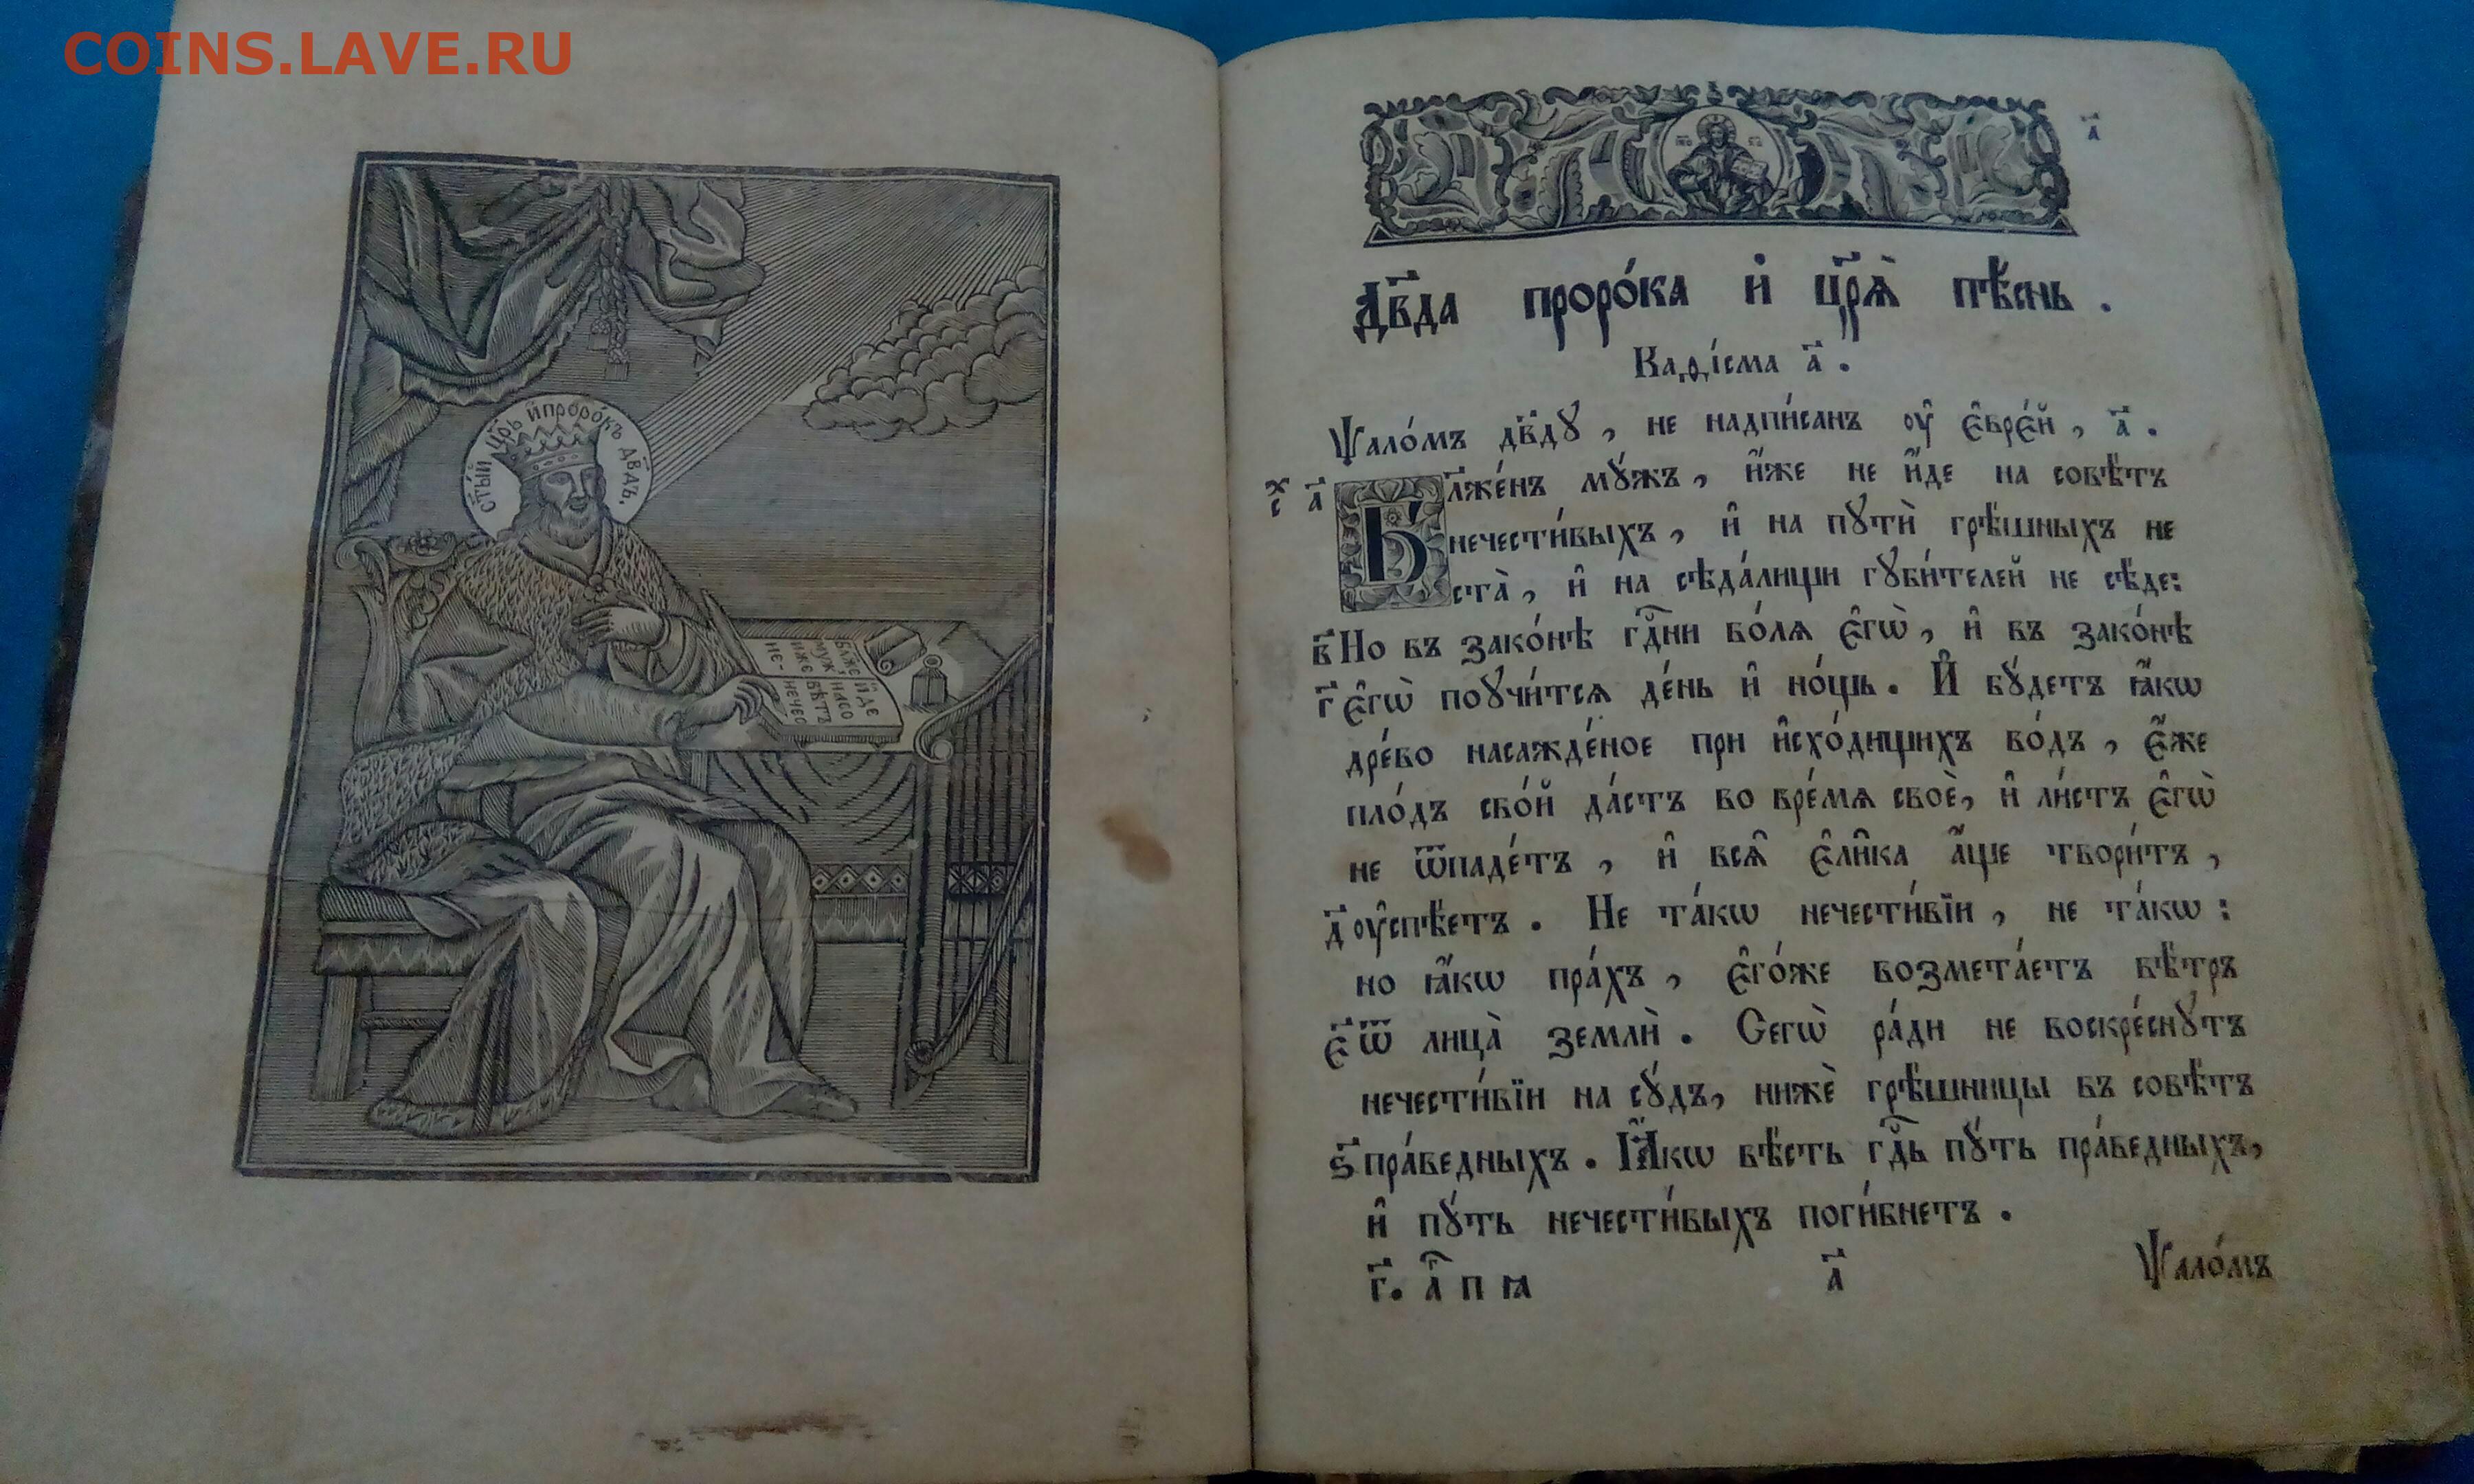 COINS.LAVE.RU
ст҃ы́й цр҃ь и҆ проро́къ дв҃дъ.
Бл҃же
муж
иже
не-
и́де
на со
вѣтъ
нечес
а҃
Дв҃да проро́ка и҆ цр҃ѧ̀ пѣ́снь .
Каѳі́сма а҃ .
Ѱало́мъ дв҃дꙋ , не надпи́санъ оу҆ є҆вре́й , а҃ .
с х а҃ Бл҃же́нъ мꙋ́жъ , и҆́же не и҆́де на совѣ́тъ
нечести́выхъ , и҆ на пꙋтѝ грѣ́шныхъ не
ста̀ , и҆ на сѣда́лищи гꙋби́телей не сѣ́де :
в҃ Но въ зако́нѣ гдⷭ҇ни во́лѧ є҆гѡ̀ , и҆ въ зако́нѣ
г҃ є҆гѡ̀ поꙋчи́тсѧ де́нь и҆ но́щь . И҆ бꙋ́детъ ꙗ҆́кѡ
дре́во насажде́ное при и҆схо́дищихъ во́дъ , є҆́же
пло́дъ сво́й да́стъ во вре́мѧ своѐ , и҆ ли́стъ є҆гѡ̀
не ѿпаде́тъ , и҆ всѧ҄ є҆ли҄ка а҆́ще твори́тъ ,
д҃ оу҆спѣ́етъ . Не та́кѡ нечести́вїи , не та́кѡ :
но ꙗ҆́кѡ пра́хъ , є҆го́же возмета́етъ вѣ́тръ
є҃ ѿ лица̀ землѝ . Сегѡ̀ ра́ди не воскре́снꙋтъ
нечести́вїи на сꙋ́дъ , нижѐ грѣ́шницы въ совѣ́тъ
ѕ҃ пра́ведныхъ . Ꙗ҆́кѡ вѣ́сть гдⷭ҇ь пꙋ́ть пра́ведныхъ ,
и҆ пꙋ́ть нечести́выхъ поги́бнетъ .
г҃ . а҃ п ꙗ а҃ Ѱало́мъ